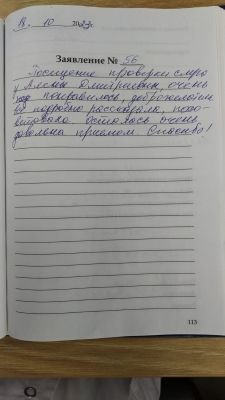 18. 10 2023г.
Заявление № 56
Посещение проверки слуха
у Алены Дмитриевны, очень
понравилось, доброжелатель
подробно рассказала, посо-
ветовала. Осталась очень
довольна приемом. Спасибо!
113